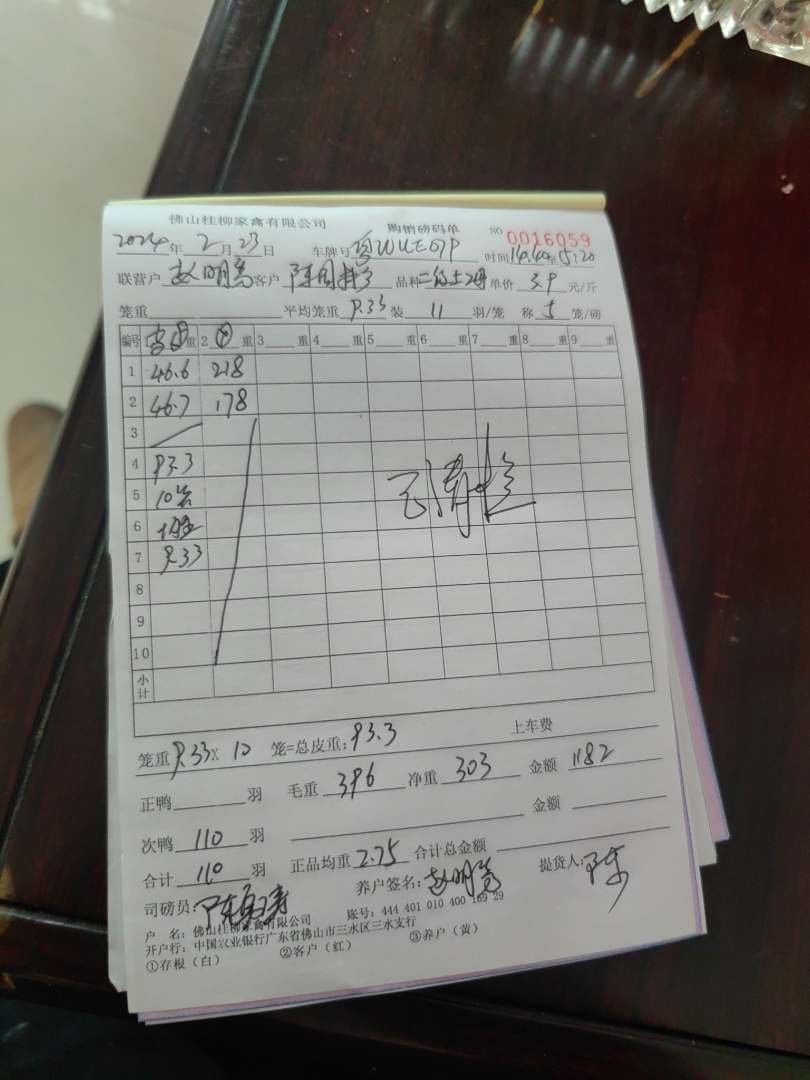 佛山桂柳家禽有限公司 购销磅码单 NO 0016059
2024年 2月 23日 车牌号 粤WUE079 时间 14:40至15:20
联营户 赵明 客户 陈国 品种 二级土 单价 3.9 元/斤
笼重 平均笼重 9.33 装 11 羽/笼 称 5 笼/磅
编号 重 2 重 3 重 4 重 5 重 6 重 7 重 8 重 9 重
1 46.6 218
2 46.7 178
3
4 93.3
5 10笼
6
7 9.33
8
9
10
小计
笼重 9.33 X 10 笼=总皮重: 93.3 上车费
正鸭 羽 毛重 396 净重 303 金额 1182
次鸭 110 羽 金额
合计 110 羽 正品均重 2.75 合计总金额
司磅员: 养户签名: 赵明 提货人: 陈
户 名: 佛山桂柳家禽有限公司 账号: 444 401 010 400 169 29
开户行: 中国农业银行广东省佛山市三水区三水支行
①存根（白） ②客户（红） ③养户（黄）